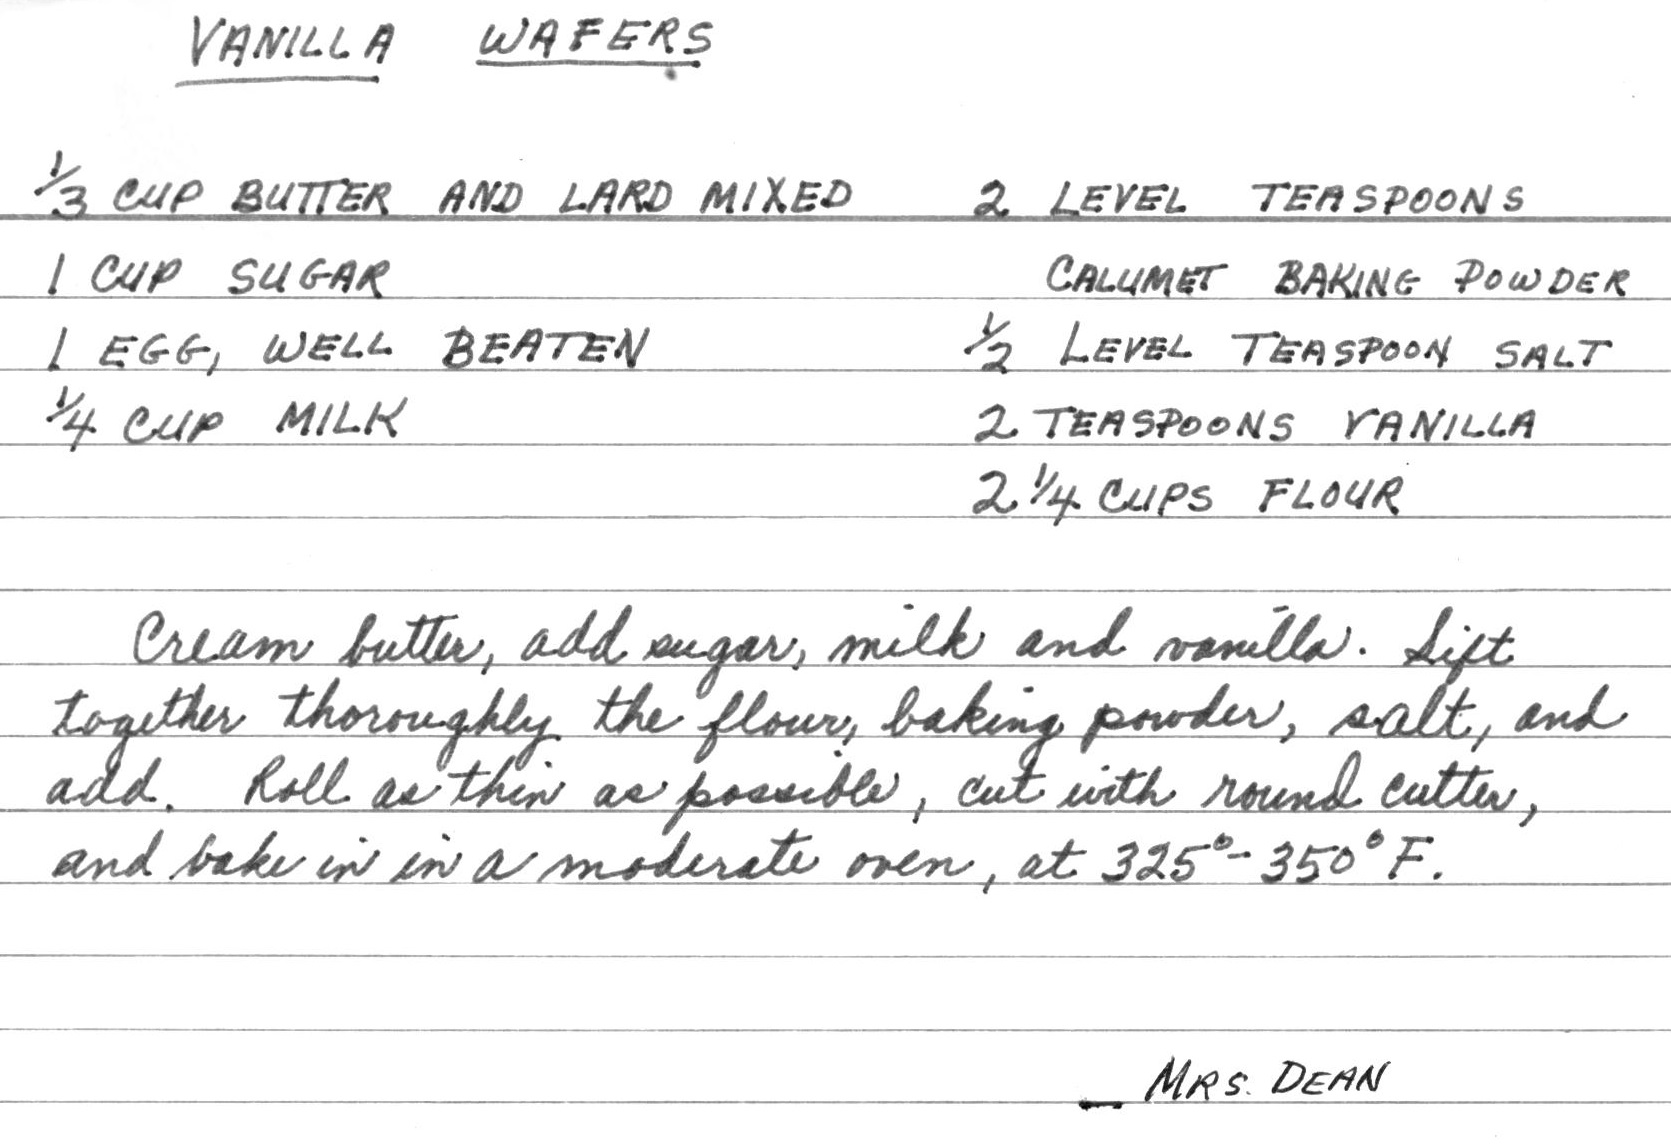 VANILLA WAFERS
1/3 CUP BUTTER AND LARD MIXED
1 CUP SUGAR
1 EGG, WELL BEATEN
1/4 CUP MILK
2 LEVEL TEASPOONS
CALUMET BAKING POWDER
1/2 LEVEL TEASPOON SALT
2 TEASPOONS VANILLA
2 1/4 CUPS FLOUR
Cream butter, add sugar, milk and vanilla. Sift
together thoroughly the flour, baking powder, salt, and
add. Roll as thin as possible, cut with round cutter,
and bake in in a moderate oven, at 325°-350°F.
— MRS. DEAN